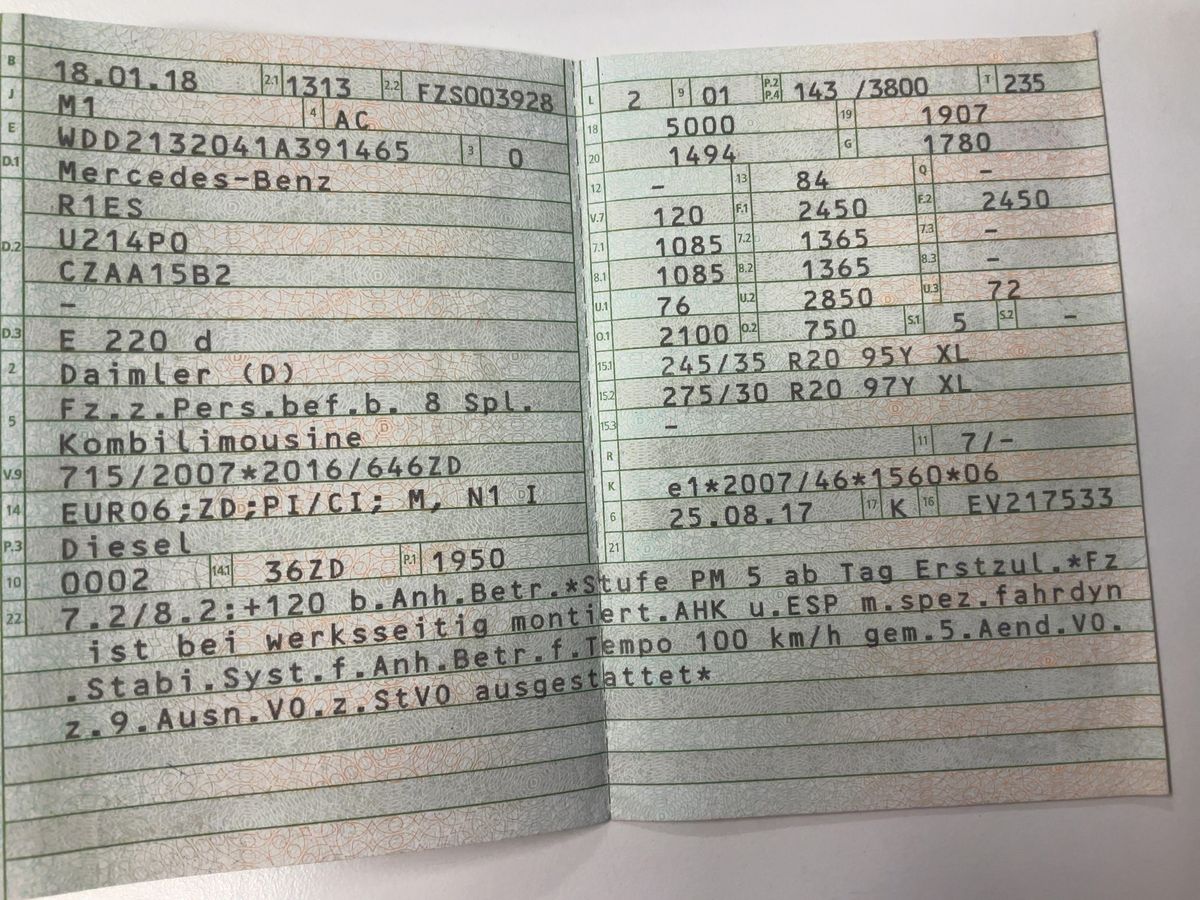 B 18.01.18 2.1 1313 2.2 FZS003928
J M1 4 AC
E WDD2132041A391465 3 0
D.1 Mercedes-Benz
R1ES
D.2 U214P0
CZAA15B2
–
D.3 E 220 d
2 Daimler (D)
5 Fz.z.Pers.bef.b. 8 Spl.
Kombilimousine
V.9 715/2007*2016/646ZD
14 EURO6;ZD;PI/CI; M, N1 I
P.3 Diesel
10 0002 14.1 36ZD P.1 1950
L 2 9 01 P.2 P.4 143 /3800 T 235
18 5000 19 1907
20 1494 G 1780
12 – 13 84 Q –
V.7 120 F.1 2450 F.2 2450
7.1 1085 7.2 1365 7.3 –
8.1 1085 8.2 1365 8.3 –
U.1 76 U.2 2850 U.3 72
O.1 2100 O.2 750 S.1 5 S.2 –
15.1 245/35 R20 95Y XL
15.2 275/30 R20 97Y XL
15.3 –
R 11 7/–
K e1*2007/46*1560*06
6 25.08.17 17 K 16 EV217533
21
22 7.2/8.2:+120 b.Anh.Betr.*Stufe PM 5 ab Tag Erstzul.*Fz
ist bei werksseitig montiert.AHK u.ESP m.spez.fahrdyn
.Stabi.Syst.f.Anh.Betr.f.Tempo 100 km/h gem.5.Aend.VO.
z.9.Ausn.VO.z.StVO ausgestattet*